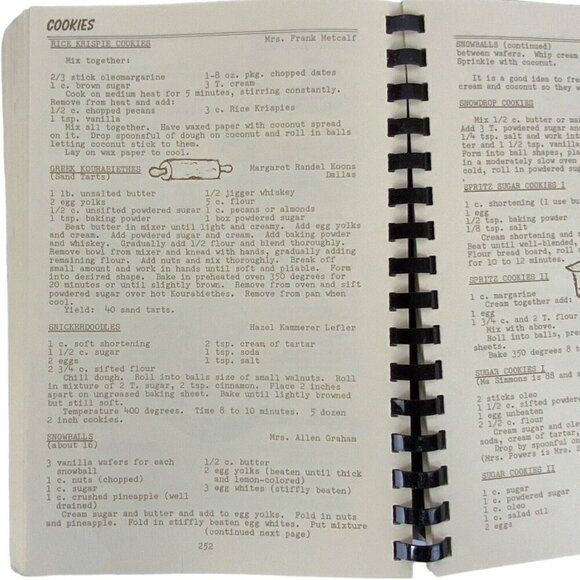 COOKIES
RICE KRISPIE COOKIES Mrs. Frank Metcalf
Mix together:
2/3 stick oleomargarine 1-8 oz. pkg. chopped dates
1 c. brown sugar 3 T. cream
Cook on medium heat for 5 minutes, stirring constantly.
Remove from heat and add:
1/2 c. chopped pecans 3 c. Rice Krispies
1 tsp. vanilla
Mix all together. Have waxed paper with coconut spread
on it. Drop spoonsful of dough on coconut and roll in balls
letting coconut stick to them.
Lay on wax paper to cool.
GREEK KOURABIETHES Margaret Randel Koons
(Sand Tarts) Dallas
1 lb. unsalted butter 1/2 jigger whiskey
2 egg yolks 5 c. flour
1/2 c. unsifted powdered sugar 1 c. pecans or almonds
1 tsp. baking powder 1 box powdered sugar
Beat butter in mixer until light and creamy. Add egg yolks
and cream. Add powdered sugar and cream. Add baking powder
and whiskey. Gradually add 1/2 flour and blend thoroughly.
Remove bowl from mixer and knead with hands, gradually adding
remaining flour. Add nuts and mix thoroughly. Break off
small amount and work in hands until soft and pliable. Form
into desired shape. Bake in preheated oven 350 degrees for
20 minutes or until slightly brown. Remove from oven and sift
powdered sugar over hot Kourabiethes. Remove from pan when
cool.
Yield: 40 sand tarts.
SNICKERDOODLES Hazel Kammerer Lefler
1 c. soft shortening 2 tsp. cream of tartar
1 1/2 c. sugar 1 tsp. soda
2 eggs 1 tsp. salt
2 3/4 c. sifted flour
Chill dough. Roll into balls size of small walnuts. Roll
in mixture of 2 T. sugar, 2 tsp. cinnamon. Place 2 inches
apart on ungreased baking sheet. Bake until lightly browned
but still soft.
Temperature 400 degrees. Time 8 to 10 minutes. 5 dozen
2 inch cookies.
SNOWBALLS Mrs. Allen Graham
(about 16)
3 vanilla wafers for each 1/2 c. butter
snowball 2 egg yolks (beaten until thick
1 c. nuts (chopped) and lemon-colored)
1 c. sugar 3 egg whites (stiffly beaten)
1 c. crushed pineapple (well
drained)
Cream sugar and butter and add to egg yolks. Fold in nuts
and pineapple. Fold in stiffly beaten egg whites. Put mixture
(continued next page)
252
SNOWBALLS (continued)
between wafers. Whip cream
Sprinkle with coconut.
It is a good idea to fre
cream and coconut so they w
SNOWDROP COOKIES
Mix 1/2 c. butter or ma
Add 3 T. powdered sugar an
1/4 tsp. salt and work into
ter and 1 1/2 tsp. vanilla
Form into ball shapes, pla
in a moderately slow oven
cold, roll in powdered sug
SPRITZ SUGAR COOKIES I
1 c. shortening (I use bu
1 egg
1/2 tsp. baking powder
1/8 tsp. salt
Cream shortening and s
Beat until well-blended,
Flour bread board, roll
for 10 to 12 minutes.
SPRITZ COOKIES II
1 c. margarine
Cream together add:
1 egg
1 3/4 c. and 2 T. flour
Mix with above.
Roll into balls, pre
sheets.
Bake 350 degrees 8 t
SUGAR COOKIES I
(Ma Simmons is 88 and s
2 sticks oleo
1 1/2 c. sifted powdere
1 egg unbeaten
2 1/2 c. flour
Cream sugar and ole
soda, cream of tartar,
Drop by spoonful on
(Mrs. Powers is Mrs.
SUGAR COOKIES II
1 c. sugar
1 c. powdered sugar
1 c. oleo
1 c. salad oil
2 eggs